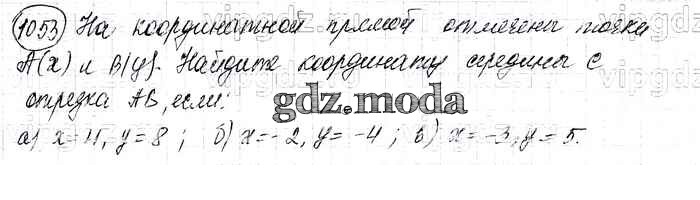 1053 На координатной прямой отмечены точки
A(x) и B(y). Найдите координату середины C
отрезка AB, если:
gdz.moda
а) x=4, y=8 ; б) x=-2, y=-4 ; в) x=-3, y=5.